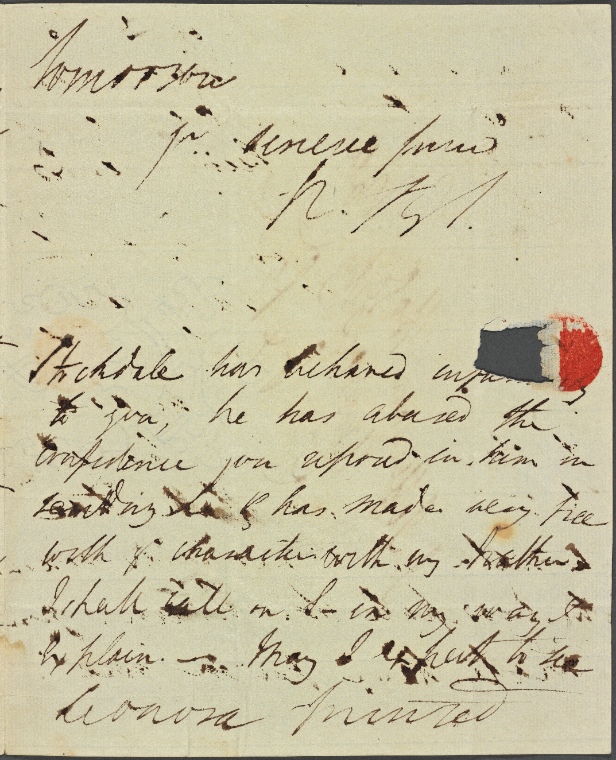 Tomorrow
yr sincere friend
P. B. S.
Stockdale has behaved infam
to you, he has abused the
confidence you reposed in him in
sending & has made very free
with yr character with my Father.
I shall call on S— in my way &
explain. — May I expect to see
Leonora printed